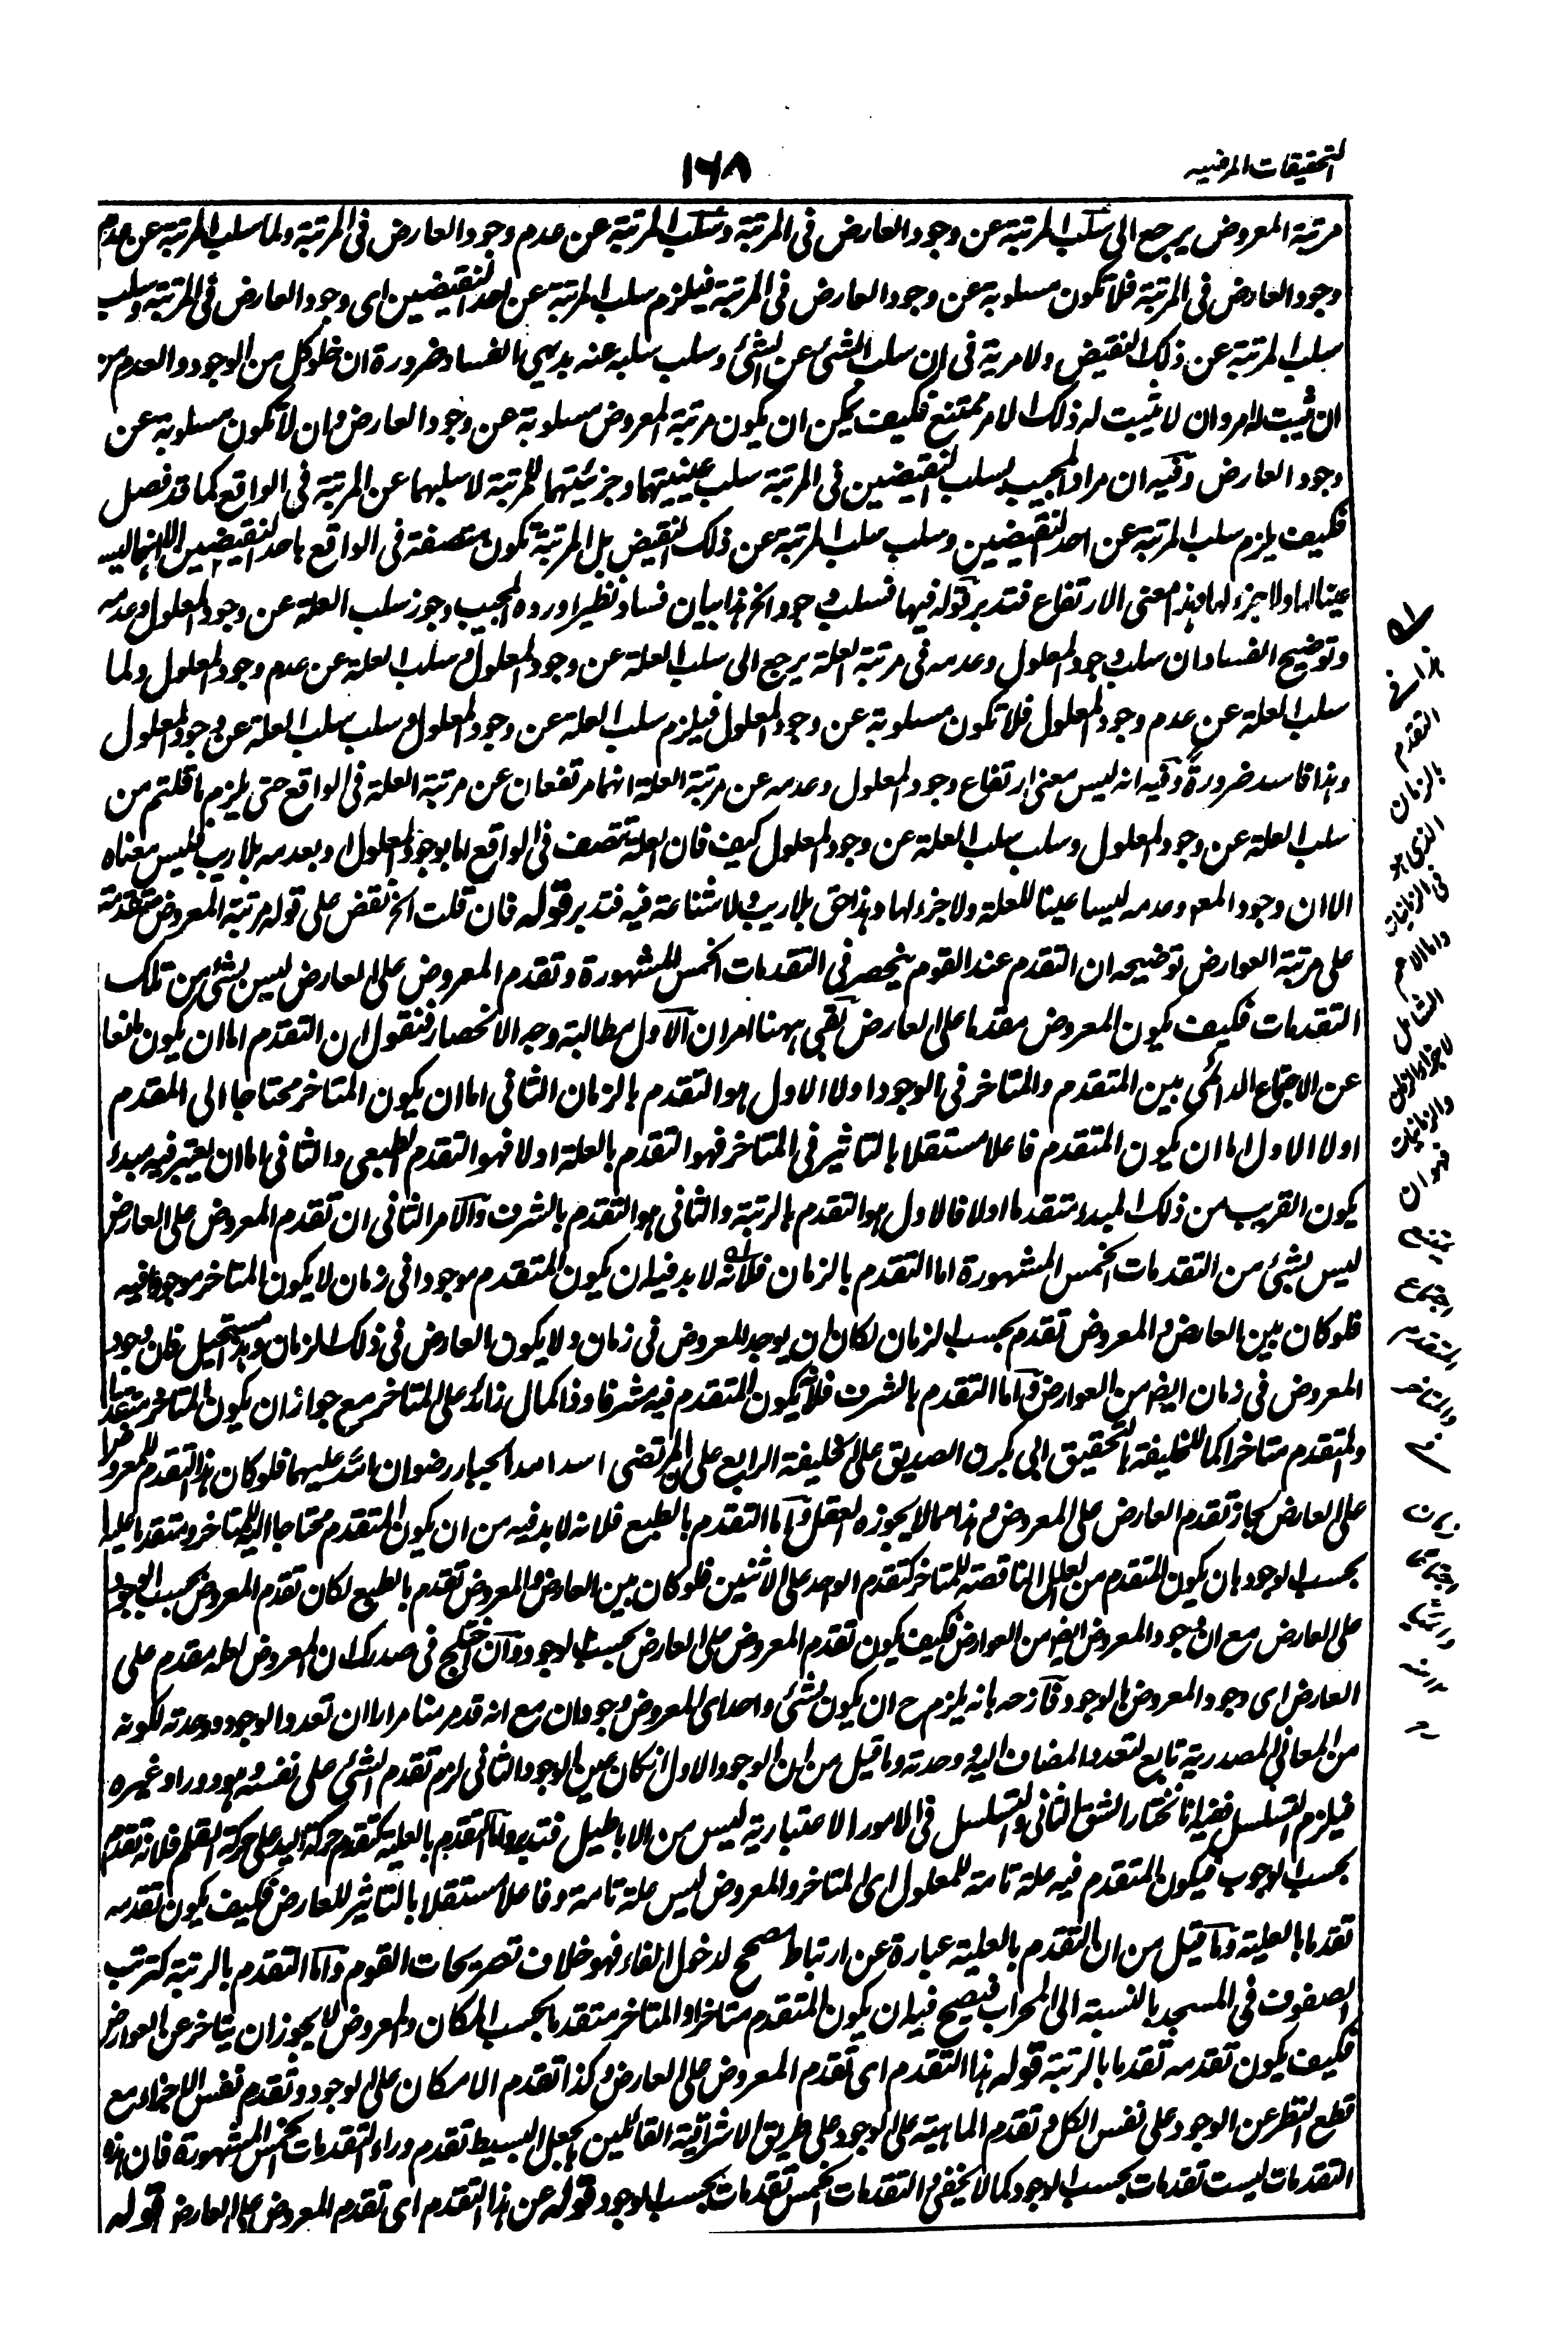 التحقيقات المرضيه
١٦٨
مرتبة المعروض يرجع الى سلب المرتبة عن وجود العارض فى المرتبة وسلب المرتبة عن عدم وجود العارض فى المرتبة ولما سلب المرتبة عن عدم
وجود العارض فى المرتبة فلا تكون مسلوبة عن وجود العارض فى المرتبة فيلزم سلب المرتبة عن احد النقيضين اى وجود العارض فى المرتبة وسلب
سلب المرتبة عن ذلك النقيض ولا مرية فى ان سلب الشئ عن الشئ وسلب سلبه عنه بديهى الفساد ضرورة ان خلو كل من الوجود والعدم من
ان يثبت له امر وان لا يثبت له ذلك الامر ممتنع فكيف يمكن ان يكون مرتبة المعروض مسلوبة عن وجود العارض وان لا تكون مسلوبة عن
وجود العارض وفيه ان مراد المجيب بسلب النقيضين فى المرتبة سلب عينيتهما وجزئيتهما للمرتبة لا سلبهما عن المرتبة فى الواقع كما قد فصل
فكيف يلزم سلب المرتبة عن احد النقيضين وسلب سلب المرتبة عن ذلك النقيض بل المرتبة تكون متصفة فى الواقع باحد النقيضين الا انهما ليسا
عينا لها ولا جزء لها وهذا معنى الارتفاع فتدبر قوله فيها فسلب وجود الخ هذا بيان فساد نظير اورده المجيب وجوز سلب العلة عن وجود المعلول وعدمه
وتوضيح الفساد ان سلب وجود المعلول وعدمه فى مرتبة العلة يرجع الى سلب العلة عن وجود المعلول وسلب العلة عن عدم وجود المعلول ولما
سلب العلة عن عدم وجود المعلول فلا تكون مسلوبة عن وجود المعلول فيلزم سلب العلة عن وجود المعلول وسلب سلب العلة عن وجود المعلول
وهذا فاسد ضرورة وفيه انه ليس معنى ارتفاع وجود المعلول وعدمه عن مرتبة العلة انهما مرتفعان عن مرتبة العلة فى الواقع حتى يلزم ما قلتم من
سلب العلة عن وجود المعلول وسلب سلب العلة عن وجود المعلول كيف فان العلة تتصف فى الواقع اما بوجود المعلول او بعدمه بلا ريب بل ليس معناه
الا ان وجود المعلول وعدمه ليسا عينا للعلة ولا جزء لها وهذا حق بلا ريب ولا شناعة فيه فتدبر قوله فان قلت الخ نقض على قوله مرتبة المعروض متقدمة
على مرتبة العوارض توضيحه ان التقدم عند القوم ينحصر فى التقدمات الخمس المشهورة وتقدم المعروض على العارض ليس بشئ من تلك
التقدمات فكيف يكون المعروض مقدما على العارض بقى ههنا امران الاول مطالبة وجه الانحصار فنقول ان التقدم اما ان يكون مانعا
عن الاجتماع الدائمى بين المتقدم والمتاخر فى الوجود اولا الاول هو التقدم بالزمان الثانى اما ان يكون المتاخر محتاجا الى المقدم
اولا الاول اما ان يكون المتقدم فاعلا مستقلا بالتاثير فى المتاخر فهو التقدم بالعلة اولا فهو التقدم الطبعى والثانى اما ان يعتبر فيه مبدء
يكون القريب من ذلك المبدء متقدما اولا فالاول هو التقدم بالرتبة والثانى هو التقدم بالشرف والامر الثانى ان تقدم المعروض على العارض
ليس بشئ من التقدمات الخمس المشهورة اما التقدم بالزمان فلانه لا بد فيه ان يكون المتقدم موجودا فى زمان لا يكون المتاخر موجودا فيه
فلو كان بين العارض والمعروض تقدم بحسب الزمان لكان ان يوجد المعروض فى زمان ولا يكون العارض فى ذلك الزمان وهذا مستحيل فان وجود
المعروض فى زمان ايضا من العوارض واما التقدم بالشرف فلان يكون المتقدم فيه مشرفا وذا كمال زائد على المتاخر مع جواز ان يكون المتاخر متقدما
والمتقدم متاخرا كما للخليفة بالتحقيق ابى بكرن الصديق على الخليفة الرابع على ن المرتضى اسد الله الجبار رضوان الله عليهما فلو كان هذا التقدم للمعروض
على العارض لجاز تقدم العارض على المعروض وهذا مما لا يجوزه العقل واما التقدم بالطبع فلانه لا بد فيه من ان يكون المتقدم محتاجا اليه للمتاخر ومتقدما عليه
بحسب الوجود بان يكون المتقدم من العلل الناقصة للمتاخر كتقدم الواحد على الاثنين فلو كان بين العارض والمعروض تقدم بالطبع لكان تقدم المعروض بحسب الوجود
على العارض مع ان وجود المعروض ايضا من العوارض فكيف يكون تقدم المعروض على العارض بحسب الوجود وان اختلج فى صدرك ان المعروض لعله مقدم على
العارض اى وجود المعروض بالوجود فازحه بانه يلزم ح ان يكون لشئ واحد اى المعروض وجودان مع انه قد مر منا مرارا ان تعدد الوجود ووحدته لكونه
من المعانى المصدرية تابع لتعدد المضاف اليه ووحدته وما قيل من ان الوجود الاول ان كان عين الوجود الثانى لزم تقدم الشئ على نفسه وهو دور او غيره
فيلزم التسلسل ففيه انا نختار الشق الثانى والتسلسل فى الامور الاعتبارية ليس من الاباطيل فتدبر واما التقدم بالعلية كتقدم حركة اليد على حركة القلم فلانه تقدم
بحسب الوجوب فيكون المتقدم فيه علة تامة للمعلول اى المتاخر والمعروض ليس علة تامة وفاعلا مستقلا بالتاثير للعارض فكيف يكون تقدمه
تقدما بالعلية وما قيل من ان التقدم بالعلية عبارة عن ارتباط مصحح لدخول الفاء فهو خلاف تصريحات القوم واما التقدم بالرتبة كترتب
الصفوف فى المسجد بالنسبة الى المحراب فيصح فيه ان يكون المتقدم متاخرا والمتاخر متقدما بحسب المكان والمعروض لا يجوز ان يتاخر عن العوارض
فكيف يكون تقدمه تقدما بالرتبة قوله هذا التقدم اى تقدم المعروض على العارض وكذا تقدم الامكان على الوجود وتقدم نفس الاجزاء مع
قطع النظر عن الوجود على نفس الكل وتقدم الماهية على الوجود على طريق الاشراقية القائلين بالجعل البسيط تقدم وراء التقدمات الخمس المشهورة فان هذه
التقدمات ليست تقدمات بحسب الوجود كما لا يخفى والتقدمات الخمس تقدمات بحسب الوجود قوله عن هذا التقدم اى تقدم المعروض على العارض قوله
هذا فى
التقدم
بالزمان
الذى هو
فى الزمانيات
واما الاعم
الشامل
لاجزاء الزمان
والزمانيات
فهو ان
يمتنع
اجتماع
المتقدم
والمتاخر